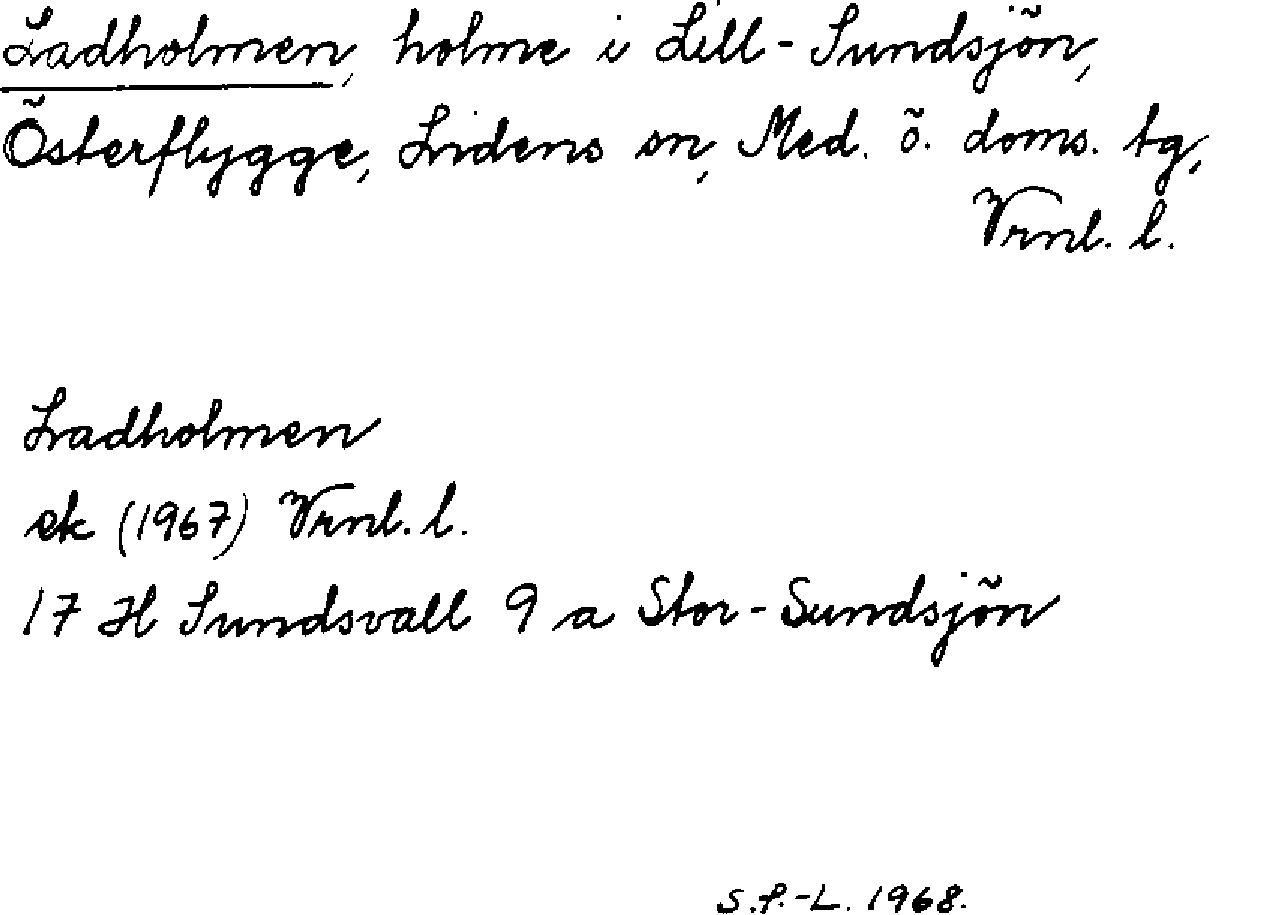 Ladholmen, holme i Lill-Sundsjön,
Österflygge, Lidens sn, Med. ö. doms. tg,
Vrnl. l.
Ladholmen
ek (1967) Vrnl. l.
17 H Sundsvall 9 a Stor-Sundsjön
S.P.-L. 1968.